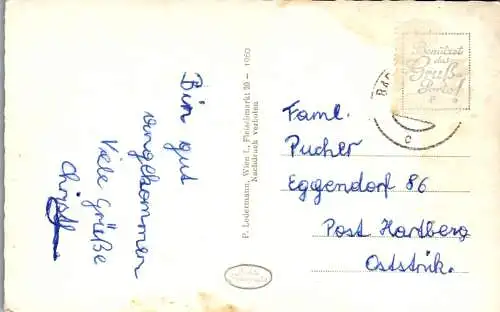 Bin gut
angekommen
Viele Grüße
P. Ledermann, Wien I., Fleischmarkt 20 – 1960
Nachdruck verboten
Benützet
das
Gruß-
Porto!
BAD
c
Faml.
Pucher
Eggendorf 86
Post Hartberg
Oststmk.